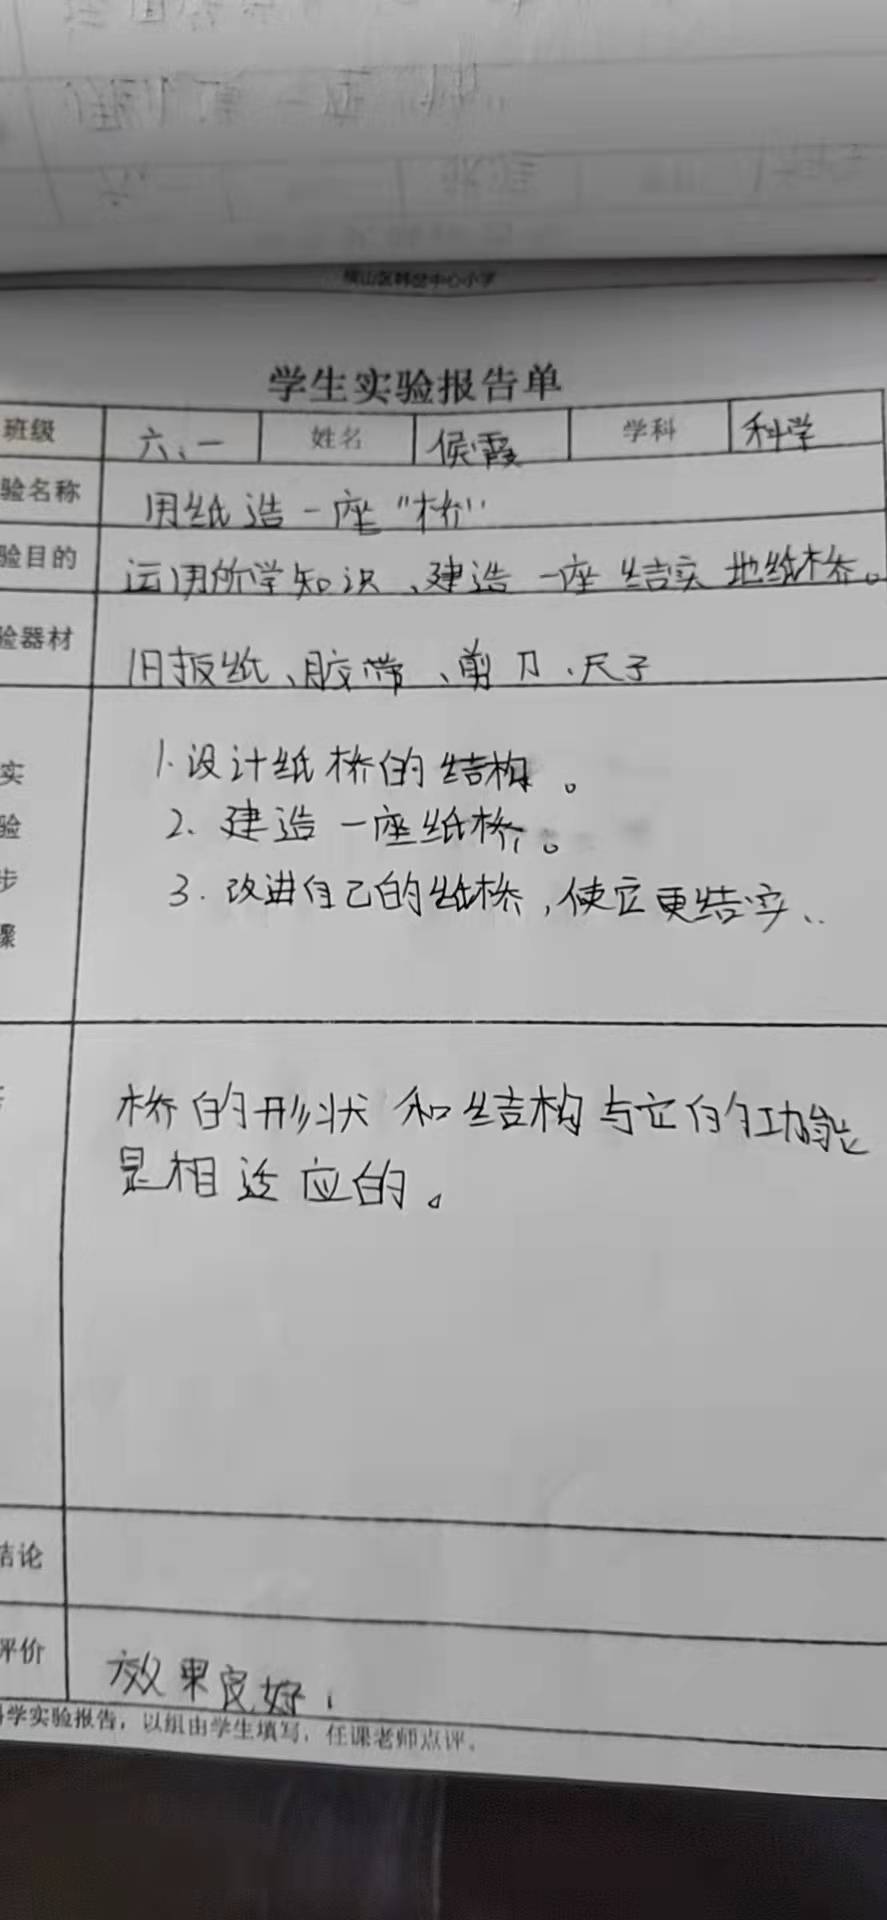 学生实验报告单
班级 六、一 姓名 侯霞 学科 科学
验名称 用纸造一座“桥”
验目的 运用所学知识、建造一座结实地纸桥。
验器材 旧报纸、胶带、剪刀、尺子
实
验
步
骤
1. 设计纸桥的结构。
2. 建造一座纸桥。
3. 改进自己的纸桥，使它更结实、.
桥的形状和结构与它的功能
是相适应的。
结论
评价 效果良好，
科学实验报告，以组由学生填写，任课老师点评。